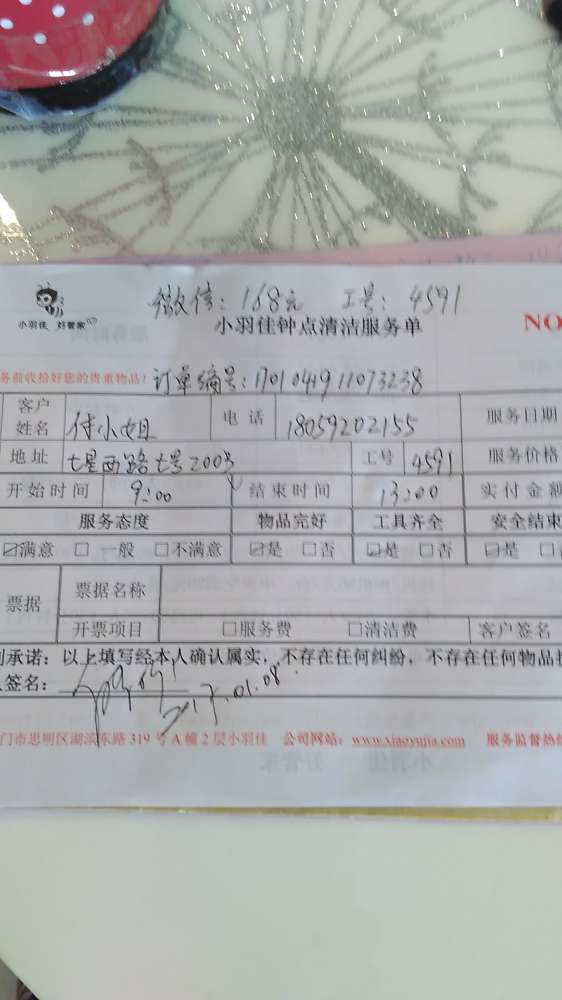 微信：168元 工号：4591
小羽佳 好管家
小羽佳钟点清洁服务单
NO
务前收拾好您的贵重物品！ 订单编号：1701041911073238
客户姓名 侍小姐 电话 18059202155 服务日期
地址 七星西路七号2003 工号 4591 服务价格
开始时间 9:00 结束时间 13:00 实付金额
服务态度 物品完好 工具齐全 安全结束
☑满意 □一般 □不满意 ☑是 □否 ☑是 □否 ☑是
票据 票据名称
开票项目 □服务费 □清洁费 客户签名
承诺：以上填写经本人确认属实，不存在任何纠纷，不存在任何物品
签名： 2017.01.08
门市思明区湖滨东路 319 号 A 幢 2 层小羽佳 公司网站：www.xiaoyujia.com 服务监督热线